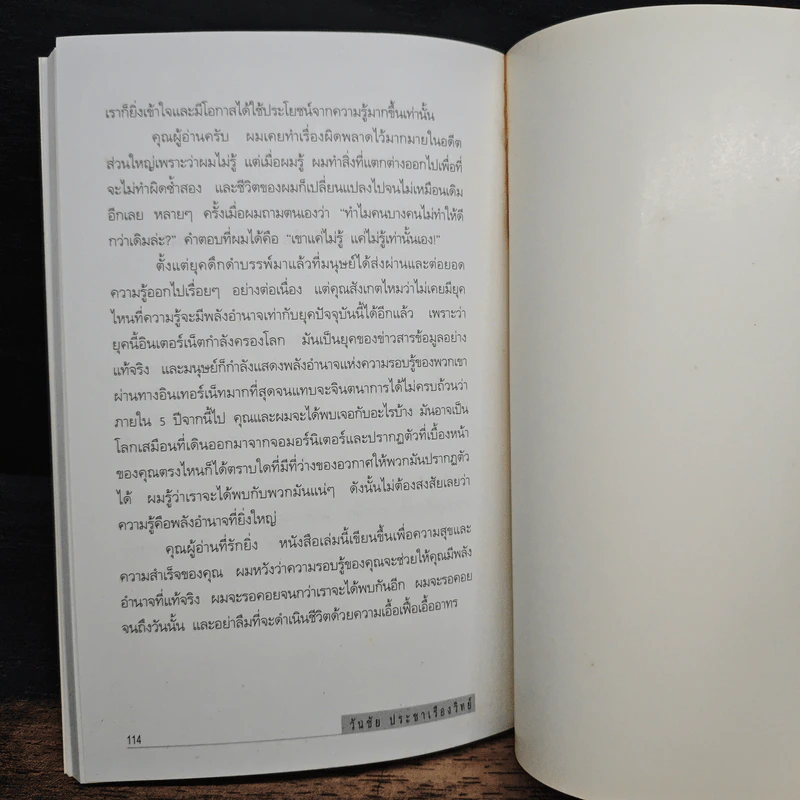 เราก็ยิ่งเข้าใจและมีโอกาสได้ใช้ประโยชน์จากความรู้มากขึ้นเท่านั้น
คุณผู้อ่านครับ ผมเคยทำเรื่องผิดพลาดไว้มากมายในอดีต
ส่วนใหญ่เพราะว่าผมไม่รู้ แต่เมื่อผมรู้ ผมทำสิ่งที่แตกต่างออกไปเพื่อที่
จะไม่ทำผิดซ้ำสอง และชีวิตของผมก็เปลี่ยนแปลงไปจนไม่เหมือนเดิม
อีกเลย หลายๆ ครั้งเมื่อผมถามตนเองว่า "ทำไมคนบางคนไม่ทำให้ดี
กว่าเดิมล่ะ?" คำตอบที่ผมได้คือ "เขาแค่ไม่รู้ แค่ไม่รู้เท่านั้นเอง!"
ตั้งแต่ยุคดึกดำบรรพ์มาแล้วที่มนุษย์ได้ส่งผ่านและต่อยอด
ความรู้ออกไปเรื่อยๆ อย่างต่อเนื่อง แต่คุณสังเกตไหมว่าไม่เคยมียุค
ไหนที่ความรู้จะมีพลังอำนาจเท่ากับยุคปัจจุบันนี้ได้อีกแล้ว เพราะว่า
ยุคนี้อินเตอร์เน็ตกำลังครองโลก มันเป็นยุคของข่าวสารข้อมูลอย่าง
แท้จริง และมนุษย์ก็กำลังแสดงพลังอำนาจแห่งความรอบรู้ของพวกเขา
ผ่านทางอินเทอร์เน็ทมากที่สุดจนแทบจะจินตนาการได้ไม่ครบถ้วนว่า
ภายใน 5 ปีจากนี้ไป คุณและผมจะได้พบเจอกับอะไรบ้าง มันอาจเป็น
โลกเสมือนที่เดินออกมาจากจอมอร์นิเตอร์และปรากฏตัวที่เบื้องหน้า
ของคุณตรงไหนก็ได้ตราบใดที่มีที่ว่างของอวกาศให้พวกมันปรากฏตัว
ได้ ผมรู้ว่าเราจะได้พบกับพวกมันแน่ๆ ดังนั้นไม่ต้องสงสัยเลยว่า
ความรู้คือพลังอำนาจที่ยิ่งใหญ่
คุณผู้อ่านที่รักยิ่ง หนังสือเล่มนี้เขียนขึ้นเพื่อความสุขและ
ความสำเร็จของคุณ ผมหวังว่าความรอบรู้ของคุณจะช่วยให้คุณมีพลัง
อำนาจที่แท้จริง ผมจะรอคอยจนกว่าเราจะได้พบกันอีก ผมจะรอคอย
จนถึงวันนั้น และอย่าลืมที่จะดำเนินชีวิตด้วยความเอื้อเฟื้อเอื้ออาทร
วันชัย ประชาเรืองวิทย์
114